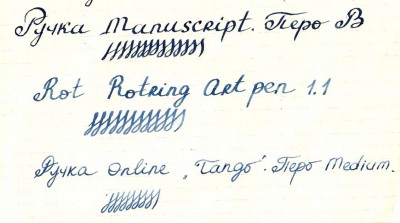 Ручка Manuscript. Перо B
Rot Rotring Art pen 1.1
Ручка Online „Tango“. Перо Medium.